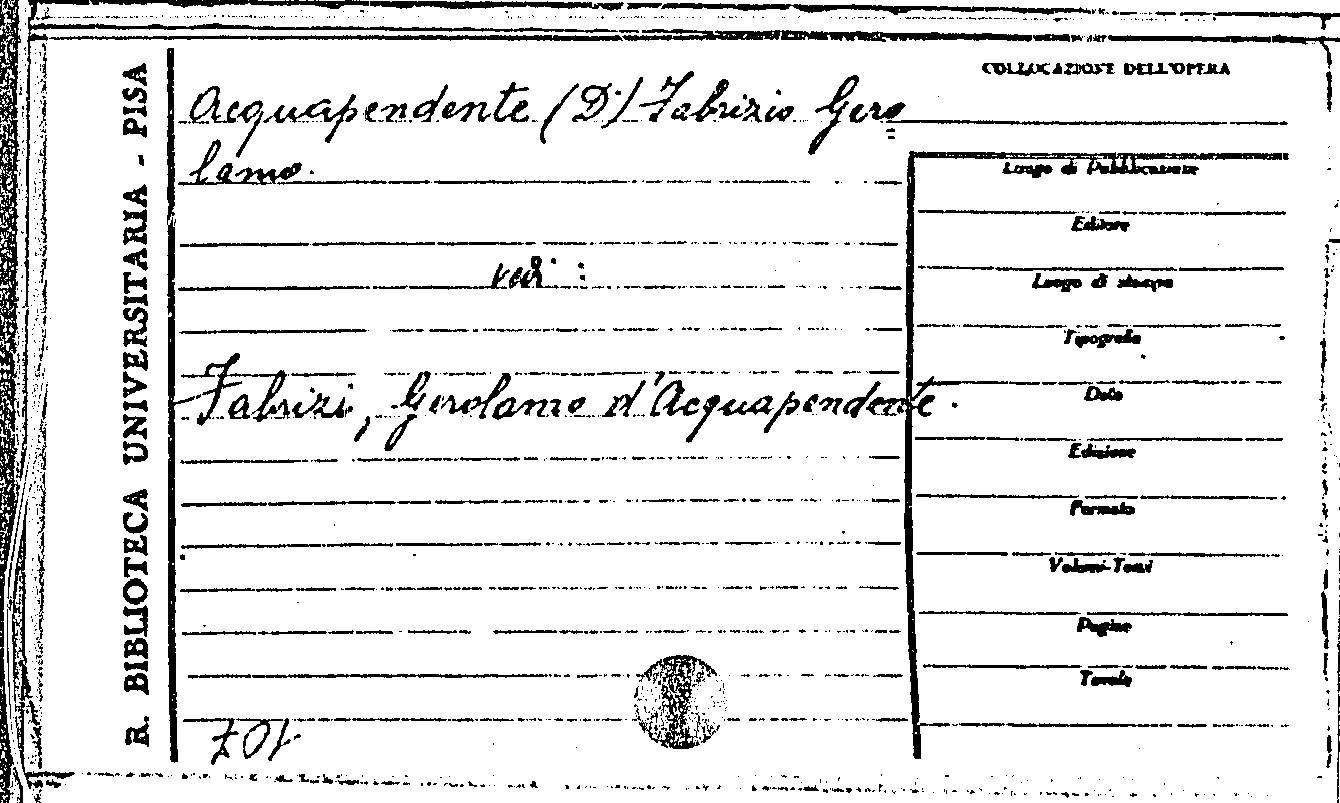 R. BIBLIOTECA UNIVERSITARIA - PISA
COLLOCAZIONE DELL'OPERA
Acquapendente (D') Fabrizio Giro
lamo.
Luogo di Pubblicazione
Editore
vedi :
Luogo di stampa
Tipografia
Fabrizi, Girolamo d'Acquapendente.
Data
Edizione
Formato
Volumi-Tomi
Pagine
Tavole